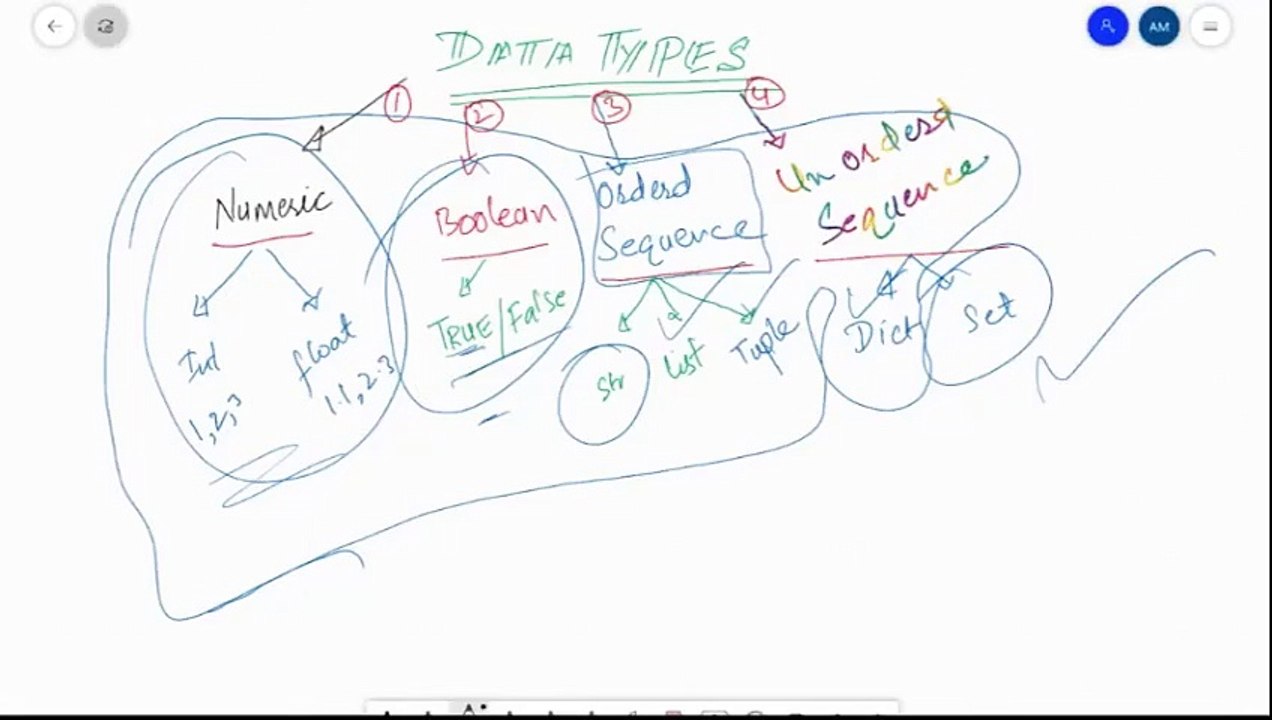 AM
DATA TYPES
1
2
3
4
Numeric
Boolean
Orderd
Sequence
Un orderd
Sequence
Int
float
1,2,3
1.1,2.3
TRUE/False
Str
List
Tuple
Dict
Set